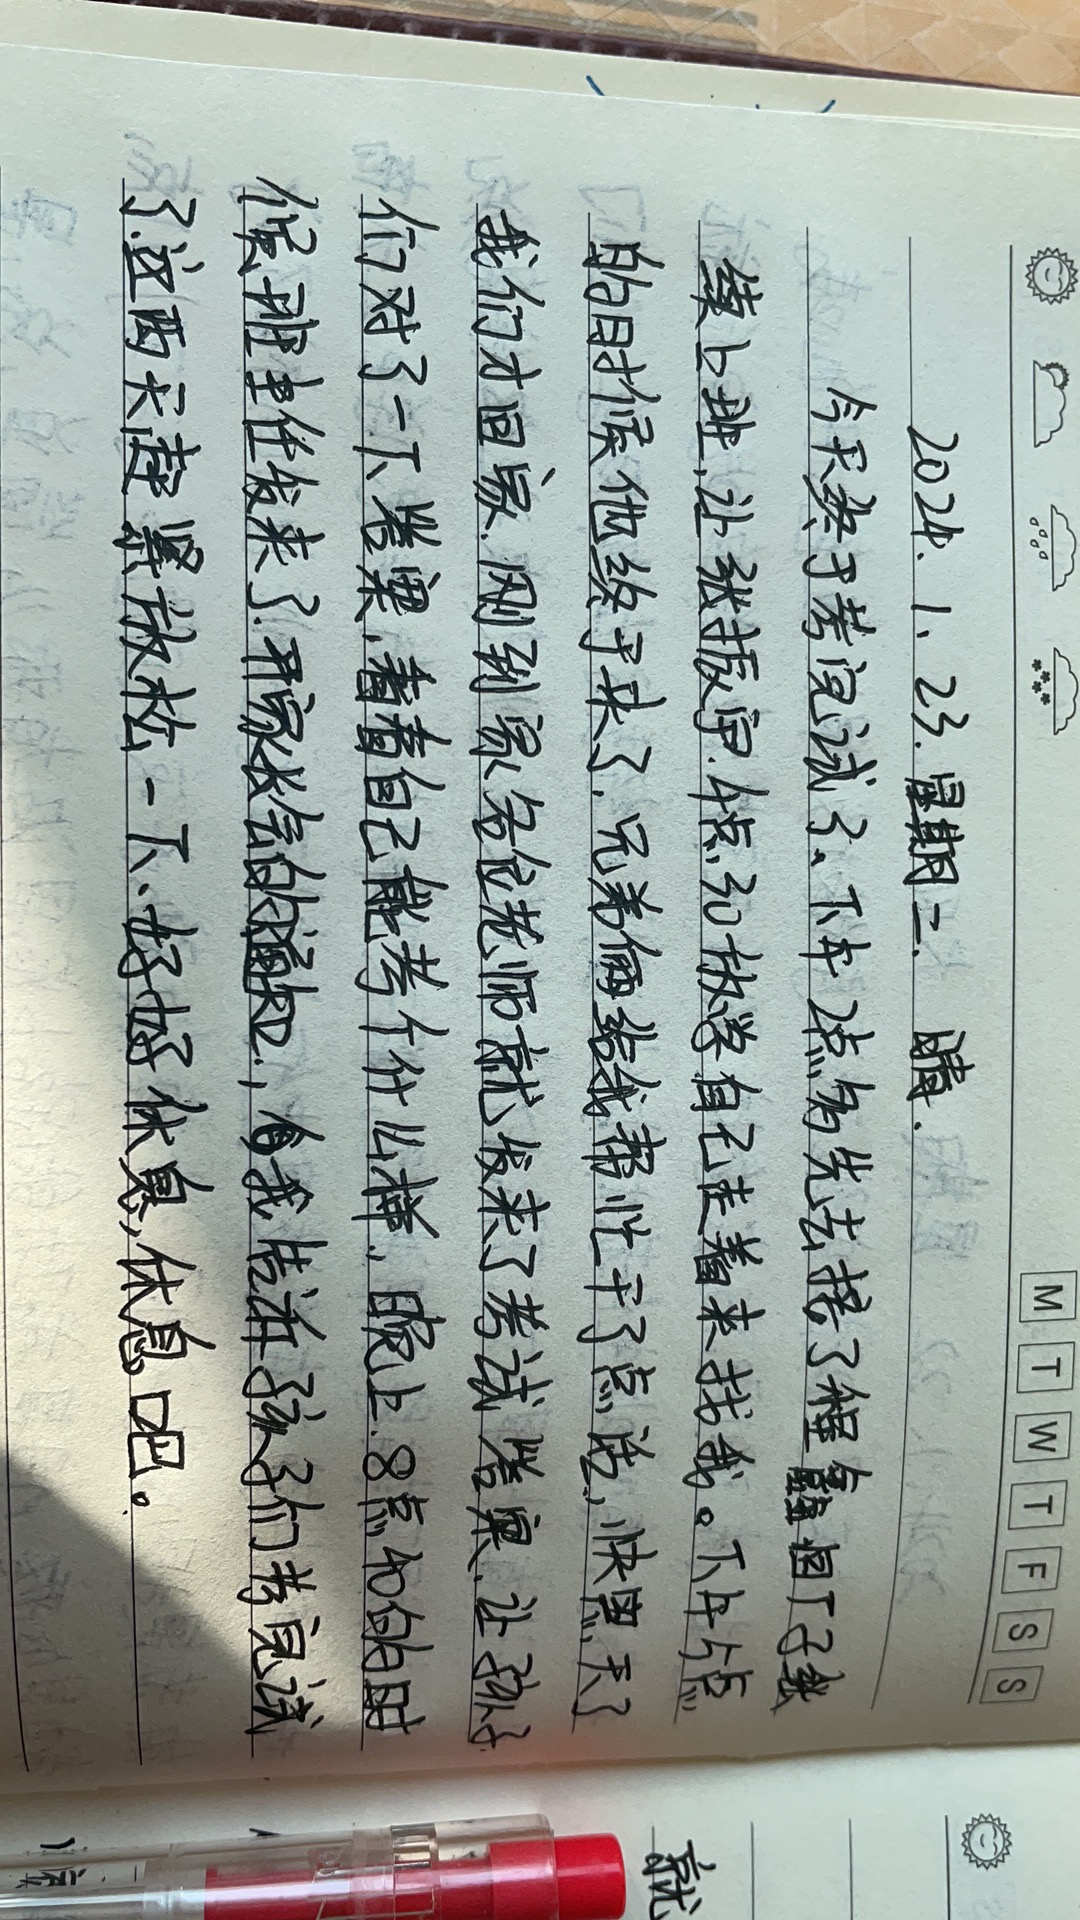 M T W T F S S
2024.1.23.星期二. 晴.
今天终于考完试了。下午2点多先去接了程鑫回厂子继
续上班,让张振宇.4点30放学自己走着来找我。下午5点
的时候他终于来了.兄弟俩给我帮忙干了点活,快黑天了
我们才回家.刚到家各位老师就发来了考试答案.让孩子
们对了一下答案,看看自己能考个什么样,晚上.8点40的时
候.班主任发来了.开家长会的通知.,有我告诉孩子们考完试
了.这两天赶紧放松一下.好好休息,休息吧。
就